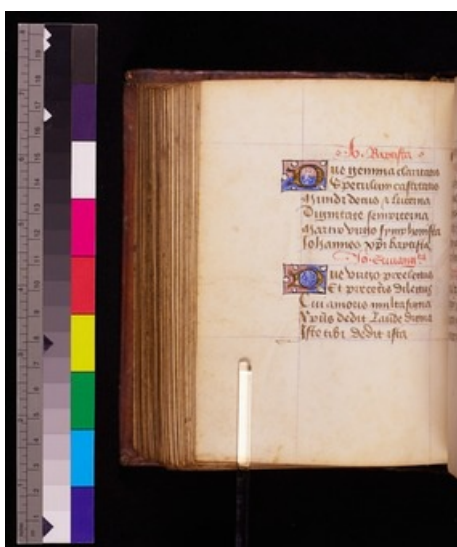 Baptista
Aue gemma claritatis
Speculum castitatis
Mundi decus & lucerna
Dignitate sempiterna
Martir virgo symphonista
Iohannes xpi baptista
Io. Euuangta
Aue virgo preelectus
Et preceteris dilectus
Cui amoris multa
Xpus dedit laude digna
Iste tibi dedit ista